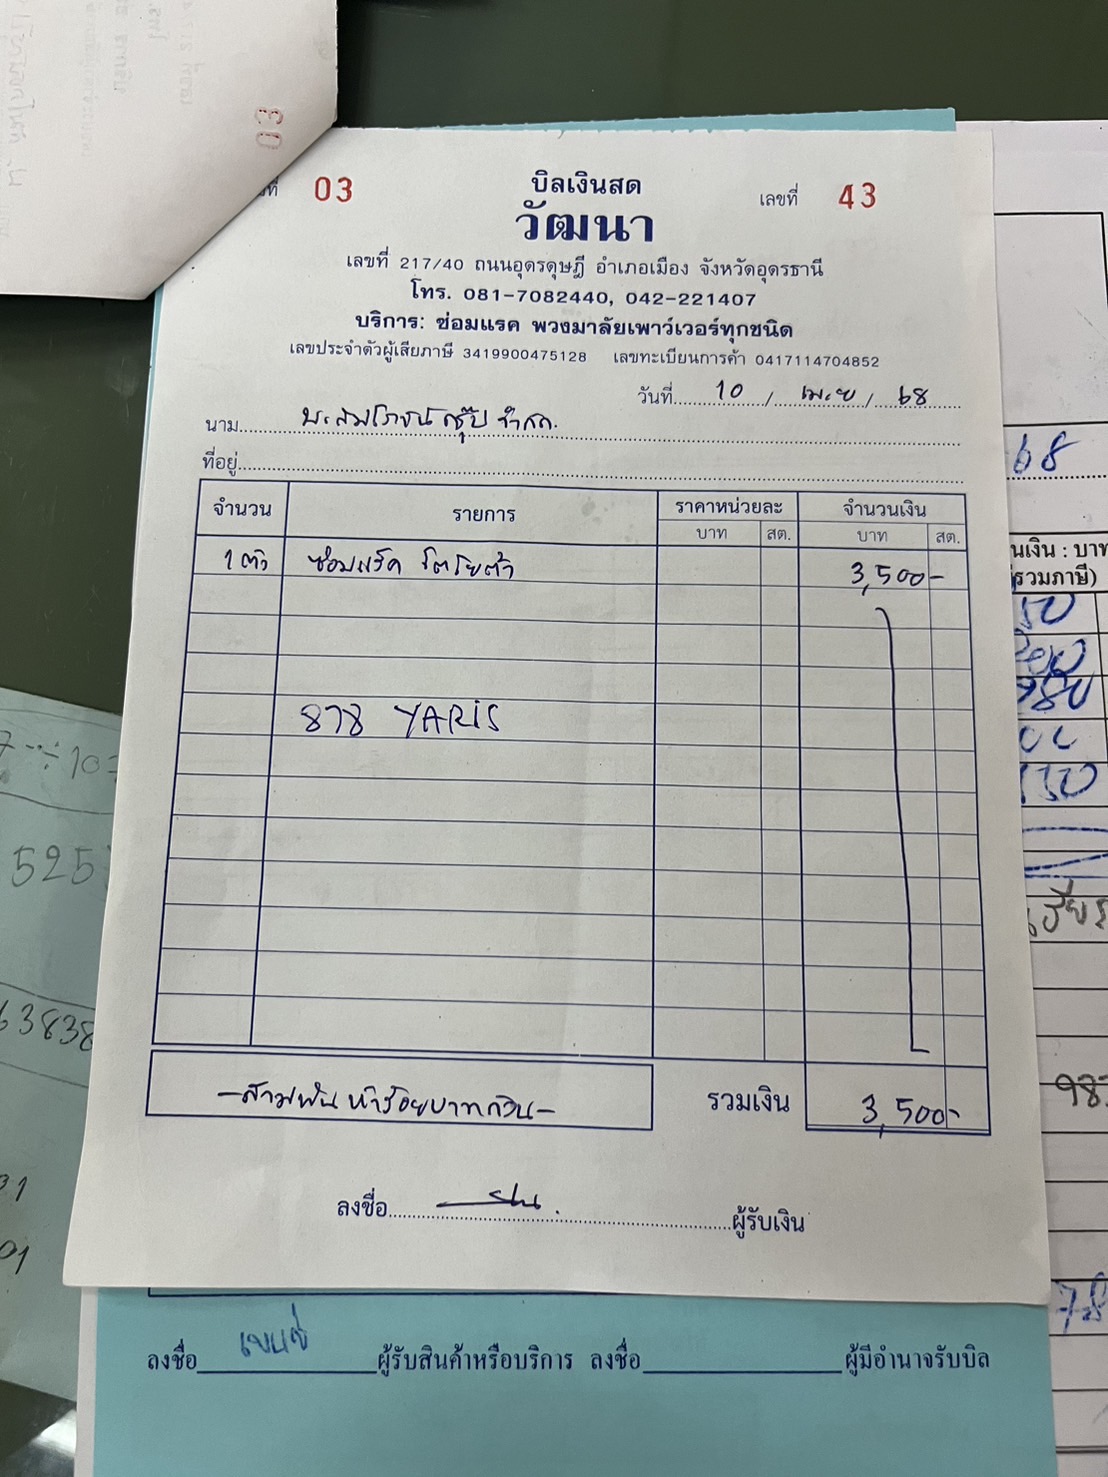 03
ที่ 03
บิลเงินสด
เลขที่ 43
วัฒนา
เลขที่ 217/40 ถนนอุดรดุษฎี อำเภอเมือง จังหวัดอุดรธานี
โทร. 081-7082440, 042-221407
บริการ: ซ่อมแรค พวงมาลัยเพาว์เวอร์ทุกชนิด
เลขประจำตัวผู้เสียภาษี 3419900475128 เลขทะเบียนการค้า 0417114704852
วันที่ 10 / เมษย / 68
นาม กรุ๊ป จำกัด
ที่อยู่
จำนวน รายการ ราคาหน่วยละ จำนวนเงิน
บาท สต. บาท สต.
1 ตัว ซ่อมแร็ค โตโยต้า 3,500-
878 YARIS
-สามพันห้าร้อยบาทถ้วน- รวมเงิน 3,500-
ลงชื่อ ผู้รับเงิน
ลงชื่อ ผู้รับสินค้าหรือบริการ ลงชื่อ ผู้มีอำนาจรับบิล
68
นเงิน : บาท
รวมภาษี)
525
63838
983
78